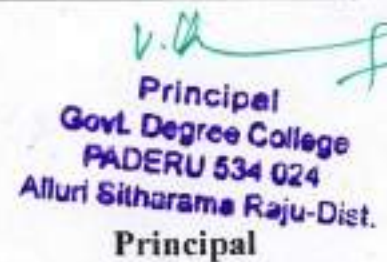 Principal
Govt. Degree College
PADERU 534 024
Alluri Sitharama Raju-Dist.
Principal